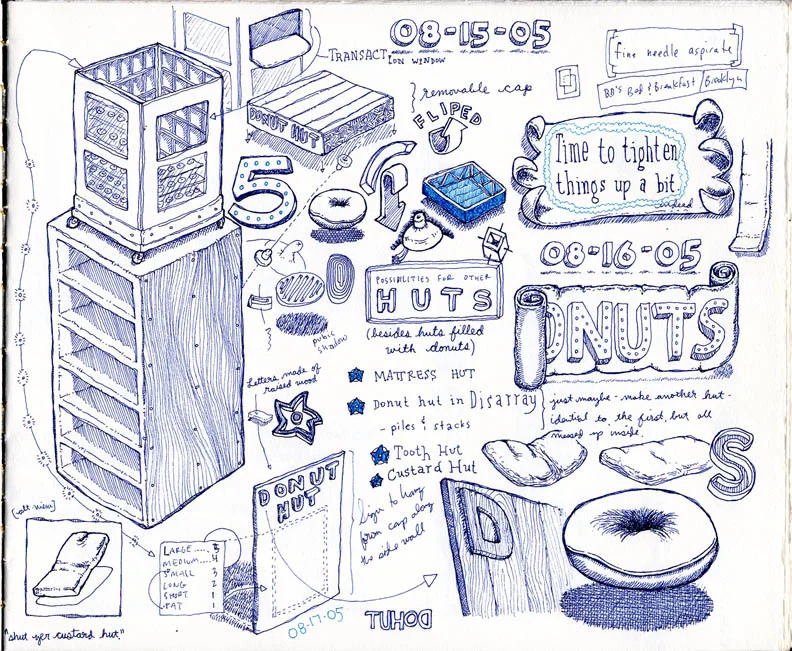 08-15-05
TRANSACTION WINDOW
fine needle aspirate
BB's Bed & Breakfast / Brooklyn
removable cap
DONUT HUT
FLIPED
Time to tighten
things up a bit
indeed
5
08-16-05
DONUTS
POSSIBILITIES FOR OTHER
HUTS
(besides huts filled
with donuts)
MATTRESS HUT
Donut hut in Disarray
- piles & stacks
Tooth Hut
Custard Hut
just maybe - make another hut -
idential to the first, but all
messed up inside.
pubic
shadow
Letters made of
raised wood
S
DONUT
HUT
Sign to hang
from cap along
the side wall
D
[alt view]
LARGE.... 5
MEDIUM... 4
SMALL 3
LONG 2
SHORT 1
FAT 1
"shut yer custard hut."
08-17-05
TUHOD